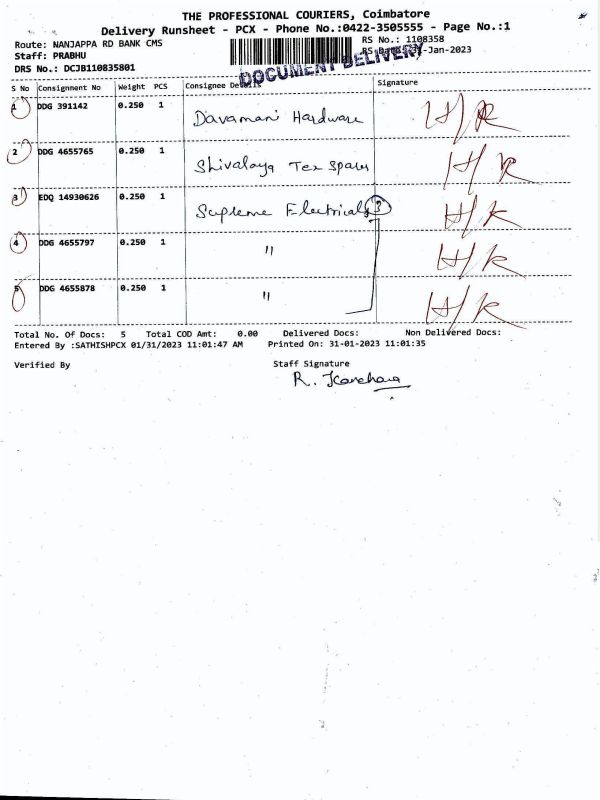 THE PROFESSIONAL COURIERS, Coimbatore
Delivery Runsheet - PCX - Phone No.:0422-3505555 - Page No.:1
Route: NANJAPPA RD BANK CMS RS No.: 1108358
Staff: PRABHU RS Date: -Jan-2023
DRS No.: DCJB110835801
DOCUMENT DELIVERY
S No Consignment No Weight PCS Consignee Details Signature
1 DDG 391142 0.250 1 Davamani Hardware H/R
2 DDG 4655765 0.250 1 Shivalaya Tex Spares H/R
3 EDQ 14930626 0.250 1 Supreme Electricals 3 H/R
4 DDG 4655797 0.250 1 " H/R
5 DDG 4655878 0.250 1 " H/R
Total No. Of Docs: 5 Total COD Amt: 0.00 Delivered Docs: Non Delivered Docs:
Entered By :SATHISHPCX 01/31/2023 11:01:47 AM Printed On: 31-01-2023 11:01:35
Verified By Staff Signature
R.